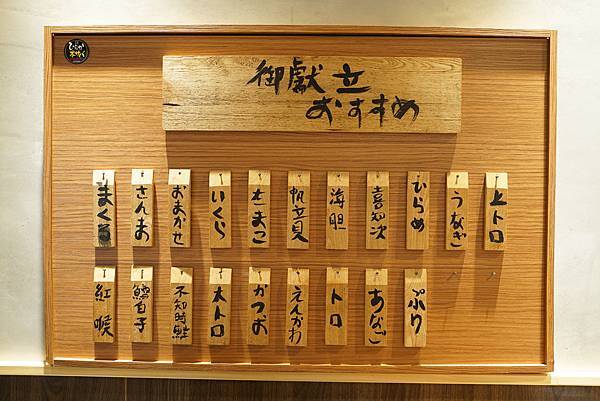 御獻立
おすすめ
上トロ
うなぎ
ひらめ
喜知次
海胆
帆立貝
たまご
いくら
おまかせ
さんま
まぐろ
ぶり
あなご
トロ
えんがわ
かつお
大トロ
不知時鮭
鱈白子
紅喉